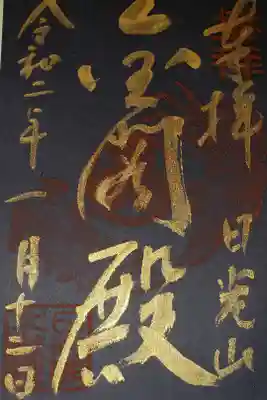 奉拝 日光山
金閣殿
令和二年一月十二日